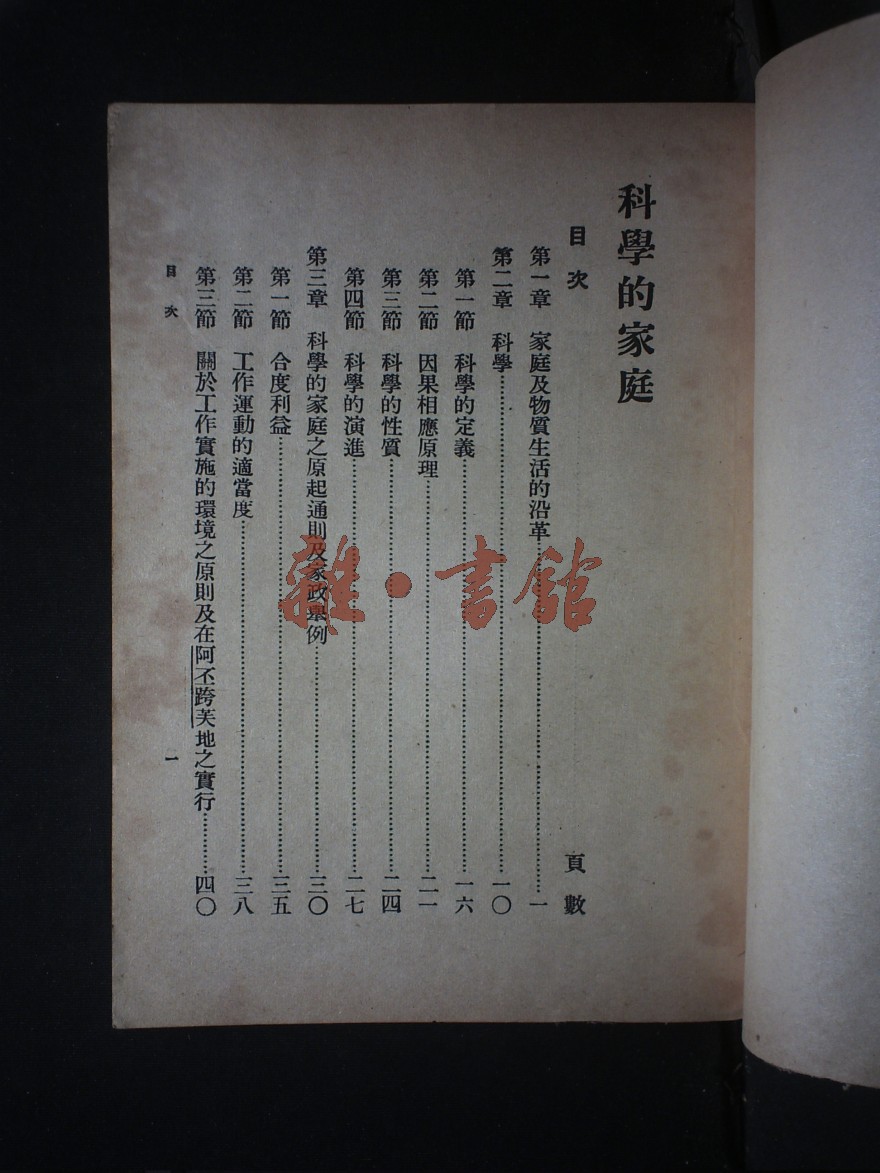 科學的家庭
目次 頁數
第一章 家庭及物質生活的沿革……一
第二章 科學……一〇
第一節 科學的定義……一六
第二節 因果相應原理……二一
第三節 科學的性質……二四
第四節 科學的演進……二七
第三章 科學的家庭之原起通則及家政舉例……三〇
第一節 合度利益……三五
第二節 工作運動的適當度……三八
第三節 關於工作實施的環境之原則及在阿不跨芙地之實行……四〇
目次 一
雜・書館